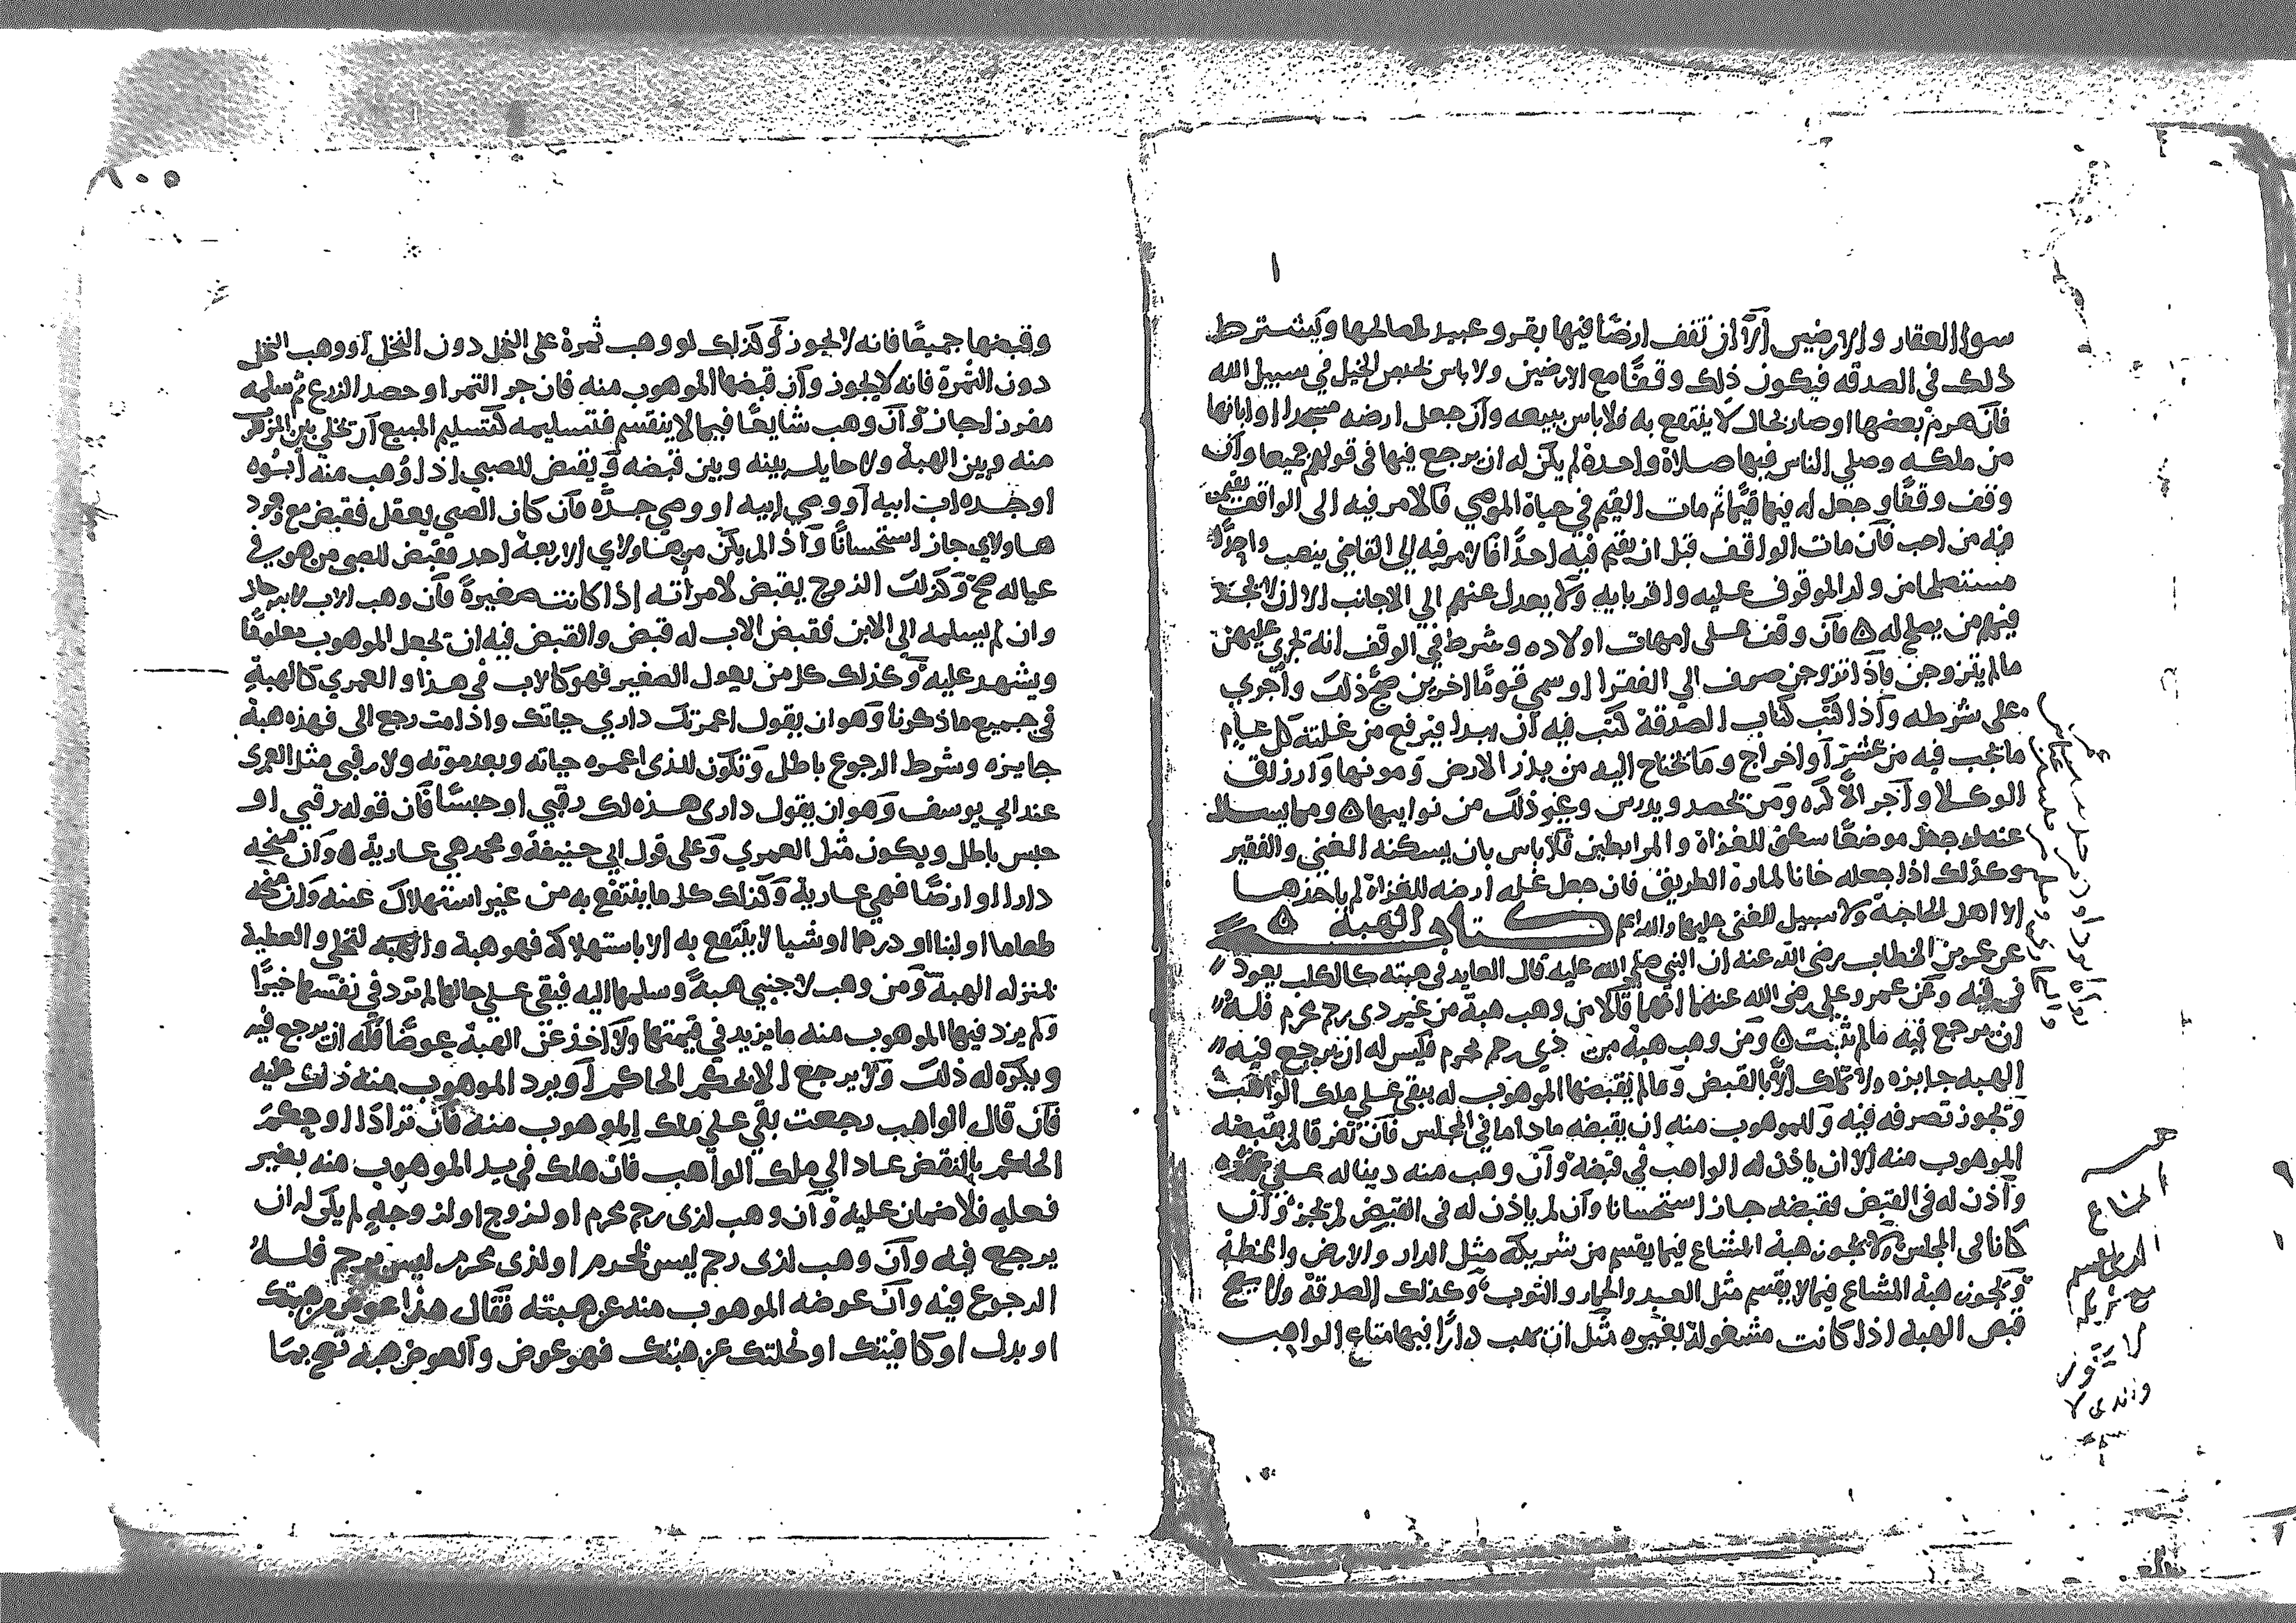 سوا العقار والارضين الا ان تقف ارضا فيها بقر وعبيد لمصالحها ويشترط
ذلك في الصدقه فيكون ذلك وقفا مع الارضين ولا باس بحبس الخيل في سبيل الله
فان هرم بعضها او صار بحال لا ينتفع به فلا باس ببيعه وان جعل ارضه مسجدا او ابانها
من ملكه وصلي الناس فيها صلاة واحدة لم يكن له ان يرجع فيها في قولهم جميعا وان
وقف وقفا وجعل له فيها قيما ثم مات القيم في حياة الموصي فالامر فيه الى الواقف يقيم
فيه من احب فان مات الواقف قبل ان يقيم فيه احدا فالامر فيه الي القاضي ينصب واحدا
من ولد الموقوف عليه واقربايه ولا يعدل عنهم الي الاجانب الا ان لا يجد
فيهم من يصلح له ٥ فان وقف على امهات اولاده وشرط في الوقف انه تجري عليهن
مالم يتزوجن فاذا تزوجن صرف الي الفقرا او سمي قوما اخرين صح ذلك واجري
على شرطه واذا كتب كتاب الصدقة كتب فيه ان يبدا فيرفع من غلته كل عام
ما يجب فيه من عشر او اخراج وما يحتاج اليه من بذر الارض ومونها وارزاق
الوكلا واجر الاكره ومن يحصد ويدرس وغير ذلك من نوايبها ٥ ومما يسال
عنه لو جعل موضعا سكنى للغزاة والمرابطين فلا باس بان يسكنه الغني والفقير
وكذلك اذا جعله خانا لمارة الطريق فان جعل غله ارضه للغزاة لم ياخذها
الا اهل الحاجة ولا سبيل للغني عليها والله اعلم كتاب الهبة ٥
عن عمر بن الخطاب رضي الله عنه ان النبي صلي الله عليه قال العايد في هبته كالكلب يعود
في قيه وعن عمر وعلي رضي الله عنهما انهما قالا من وهب هبة من غير ذي رحم محرم فله
ان يرجع فيه مالم يثبت ٥ ومن وهب هبة من ذي رحم محرم فليس له ان يرجع فيه
الهبه جايزه ولا تملك الا بالقبض وما لم يقبضها الموهوب له يبقى على ملك الواهب
وتجوز تصرفه فيه وللموهوب منه ان يقبضه ما داما في المجلس فان تفرقا لم يقبضه
الموهوب منه الا ان ياذن له الواهب في قبضه وان وهب منه دينا له على
واذن له في القبض فقبضه جاز استحسانا وان لم ياذن له في القبض لم تجز وان
كانا في المجلس ولا يجوز هبة المشاع فيما يقسم من شريكه مثل الدار والارض والحنطة
ويجوز هبة المشاع فيما لا يقسم مثل العبد والحمار والثوب وكذلك الصدقة ولا يصح
قبض الهبة اذا كانت مشغولة بغيره مثل ان يهب دارا فيها متاع الواهب
المشاع
لا يجوز
١٠٥
وقبضها جميعا فانه لا يجوز وكذلك لو وهب ثمرة على النخل دون النخل او وهب النخل
دون الثمرة فانه لا يجوز وان قبضها الموهوب منه فان جز التمر او حصد الزرع ثم سلمه
مفرزا جاز وان وهب شايعا فيما لا ينقسم فتسليمه كتسليم المبيع ان يخلي بين الموهوب
منه وبين الهبة ولا حايل بينه وبين قبضه ويقبض للصبي اذا وهب منه ابوه
او جده اب ابيه او وصي ابيه او وصي جده فان كان الصبي يعقل فقبض مع وجود
هاولاي جاز استحسانا واذا لم يكن من هاولاي الاربعة احد فقبض للصبي من هو في
عياله صح وكذلك الزوج يقبض لامراته اذا كانت صغيرة فان وهب الاب لابنه جاز
وان لم يسلمه الي الابن فقبض الاب له قبض والقبض فيه ان يجعل الموهوب معلوما
ويشهد عليه وكذلك كل من يعول الصغير فهو كالاب في هذا والعمري كالهبة
في جميع ما ذكرنا وهو ان يقول اعمرتك داري حياتك واذا مت رجع الى فهذه هبة
جايزه وشرط الرجوع باطل وتكون للذي اعمره حياته وبعد موته ولا رقبى مثل العمرى
عند ابي يوسف وهو ان يقول داري هذه لك رقبي او حبسا فان قوله رقبي او
حبس باطل ويكون مثل العمري وعلى قول ابي حنيفة ومحمد هي عارية ٥ وان منحه
دارا او ارضا فهي عارية وكذلك كل ما ينتفع به من غير استهلاك عينه وان منحه
طعاما او لبنا او درهما او شيا لا ينتفع به الا باستهلاكه فهو هبة والهبه النحلي والعطية
بمنزله الهبة ومن وهب لاجنبي هبة وسلمها اليه فبقي على حالها لم تزد في نفسها خيرا
ولم يزد فيها الموهوب منه ما يزيد في قيمتها ولا اخذ عن الهبة عوضا فله ان يرجع فيه
ويكره له ذلك ولا يرجع الا بحكم الحاكم او يرد الموهوب منه ذلك عليه
فان قال الواهب رجعت بقي على ملك الموهوب منه فان ترادا او حكم
الحاكم بالنقض عاد الي ملك الواهب فان هلك في يد الموهوب منه بغير
فعله فلا ضمان عليه وان وهب لذي رحم محرم او لزوج او لزوجه لم يكن له ان
يرجع فيه وان وهب لذي رحم ليس بمحرم او لذي محرم ليس برحم فله
الرجوع فيه وان عوضه الموهوب منه عن هبته فقال هذا عوض من هبتك
او بدل او كافيتك او نحلتك عن هبتك فهو عوض والعوض هبة تصح بما